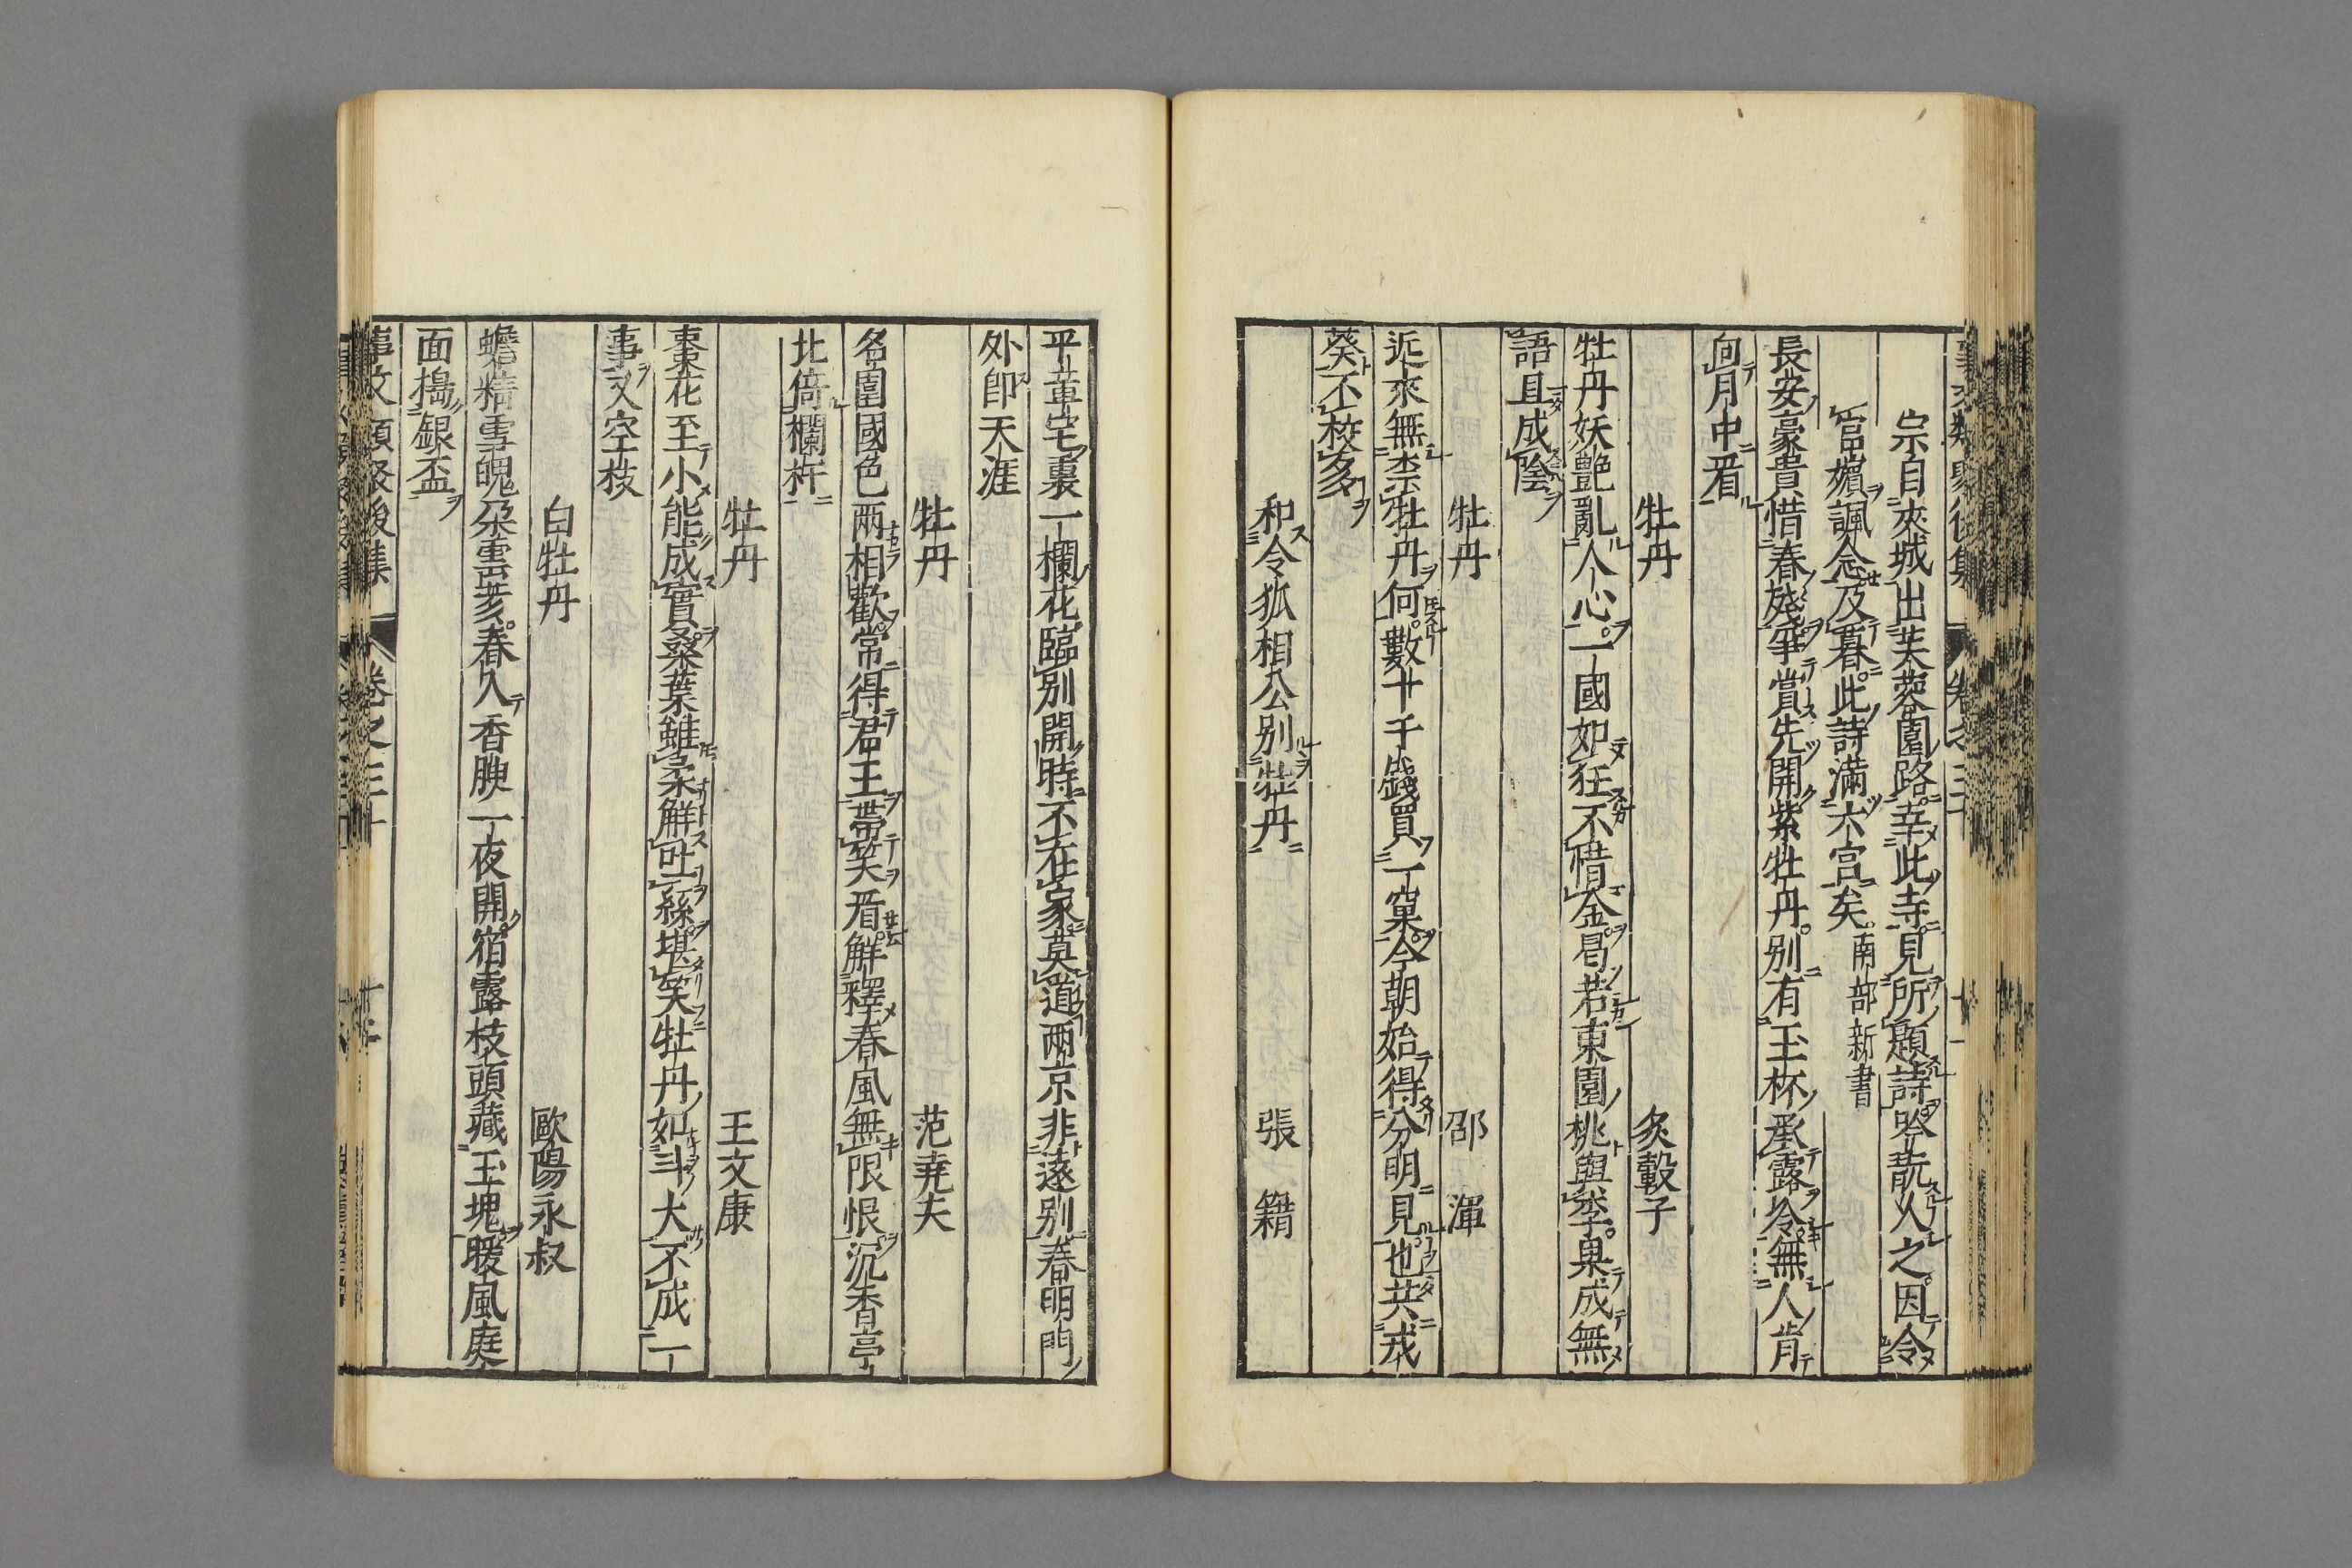 宗自夾城出芙蓉園路幸此寺見所題詩吟翫久之因令
宮嬪諷念及暮此詩滿六宮矣南部新書
長安豪貴惜春殘爭賞先開紫牡丹別有玉杯承露冷無人肯
向月中看
牡丹　炙轂子
牡丹妖艶亂人心一國如狂不惜金曷若東園桃與李果成無
語且成陰
牡丹　邵渾
近來無柰牡丹何數十千錢買一窠今朝始得分明見也共戎
葵不校多
和令狐相公別牡丹　張籍
平章宅裏一欄花臨別開時不在家莫道兩京非遠別春明門
外即天涯
牡丹　范堯夫
名園國色兩相歡常得君王帶笑看解釋春風無限恨沉香亭
北倚欄杆
牡丹　王文康
棗花至小能成實桑葉雖柔解吐絲堪笑牡丹如斗大不成一
事又空枝
白牡丹　歐陽永叔
蟾精雪魄孕雲荄春入香腴一夜開宿露枝頭藏玉塊暖風庭
面搗銀盃
事文類聚後集　卷之三十